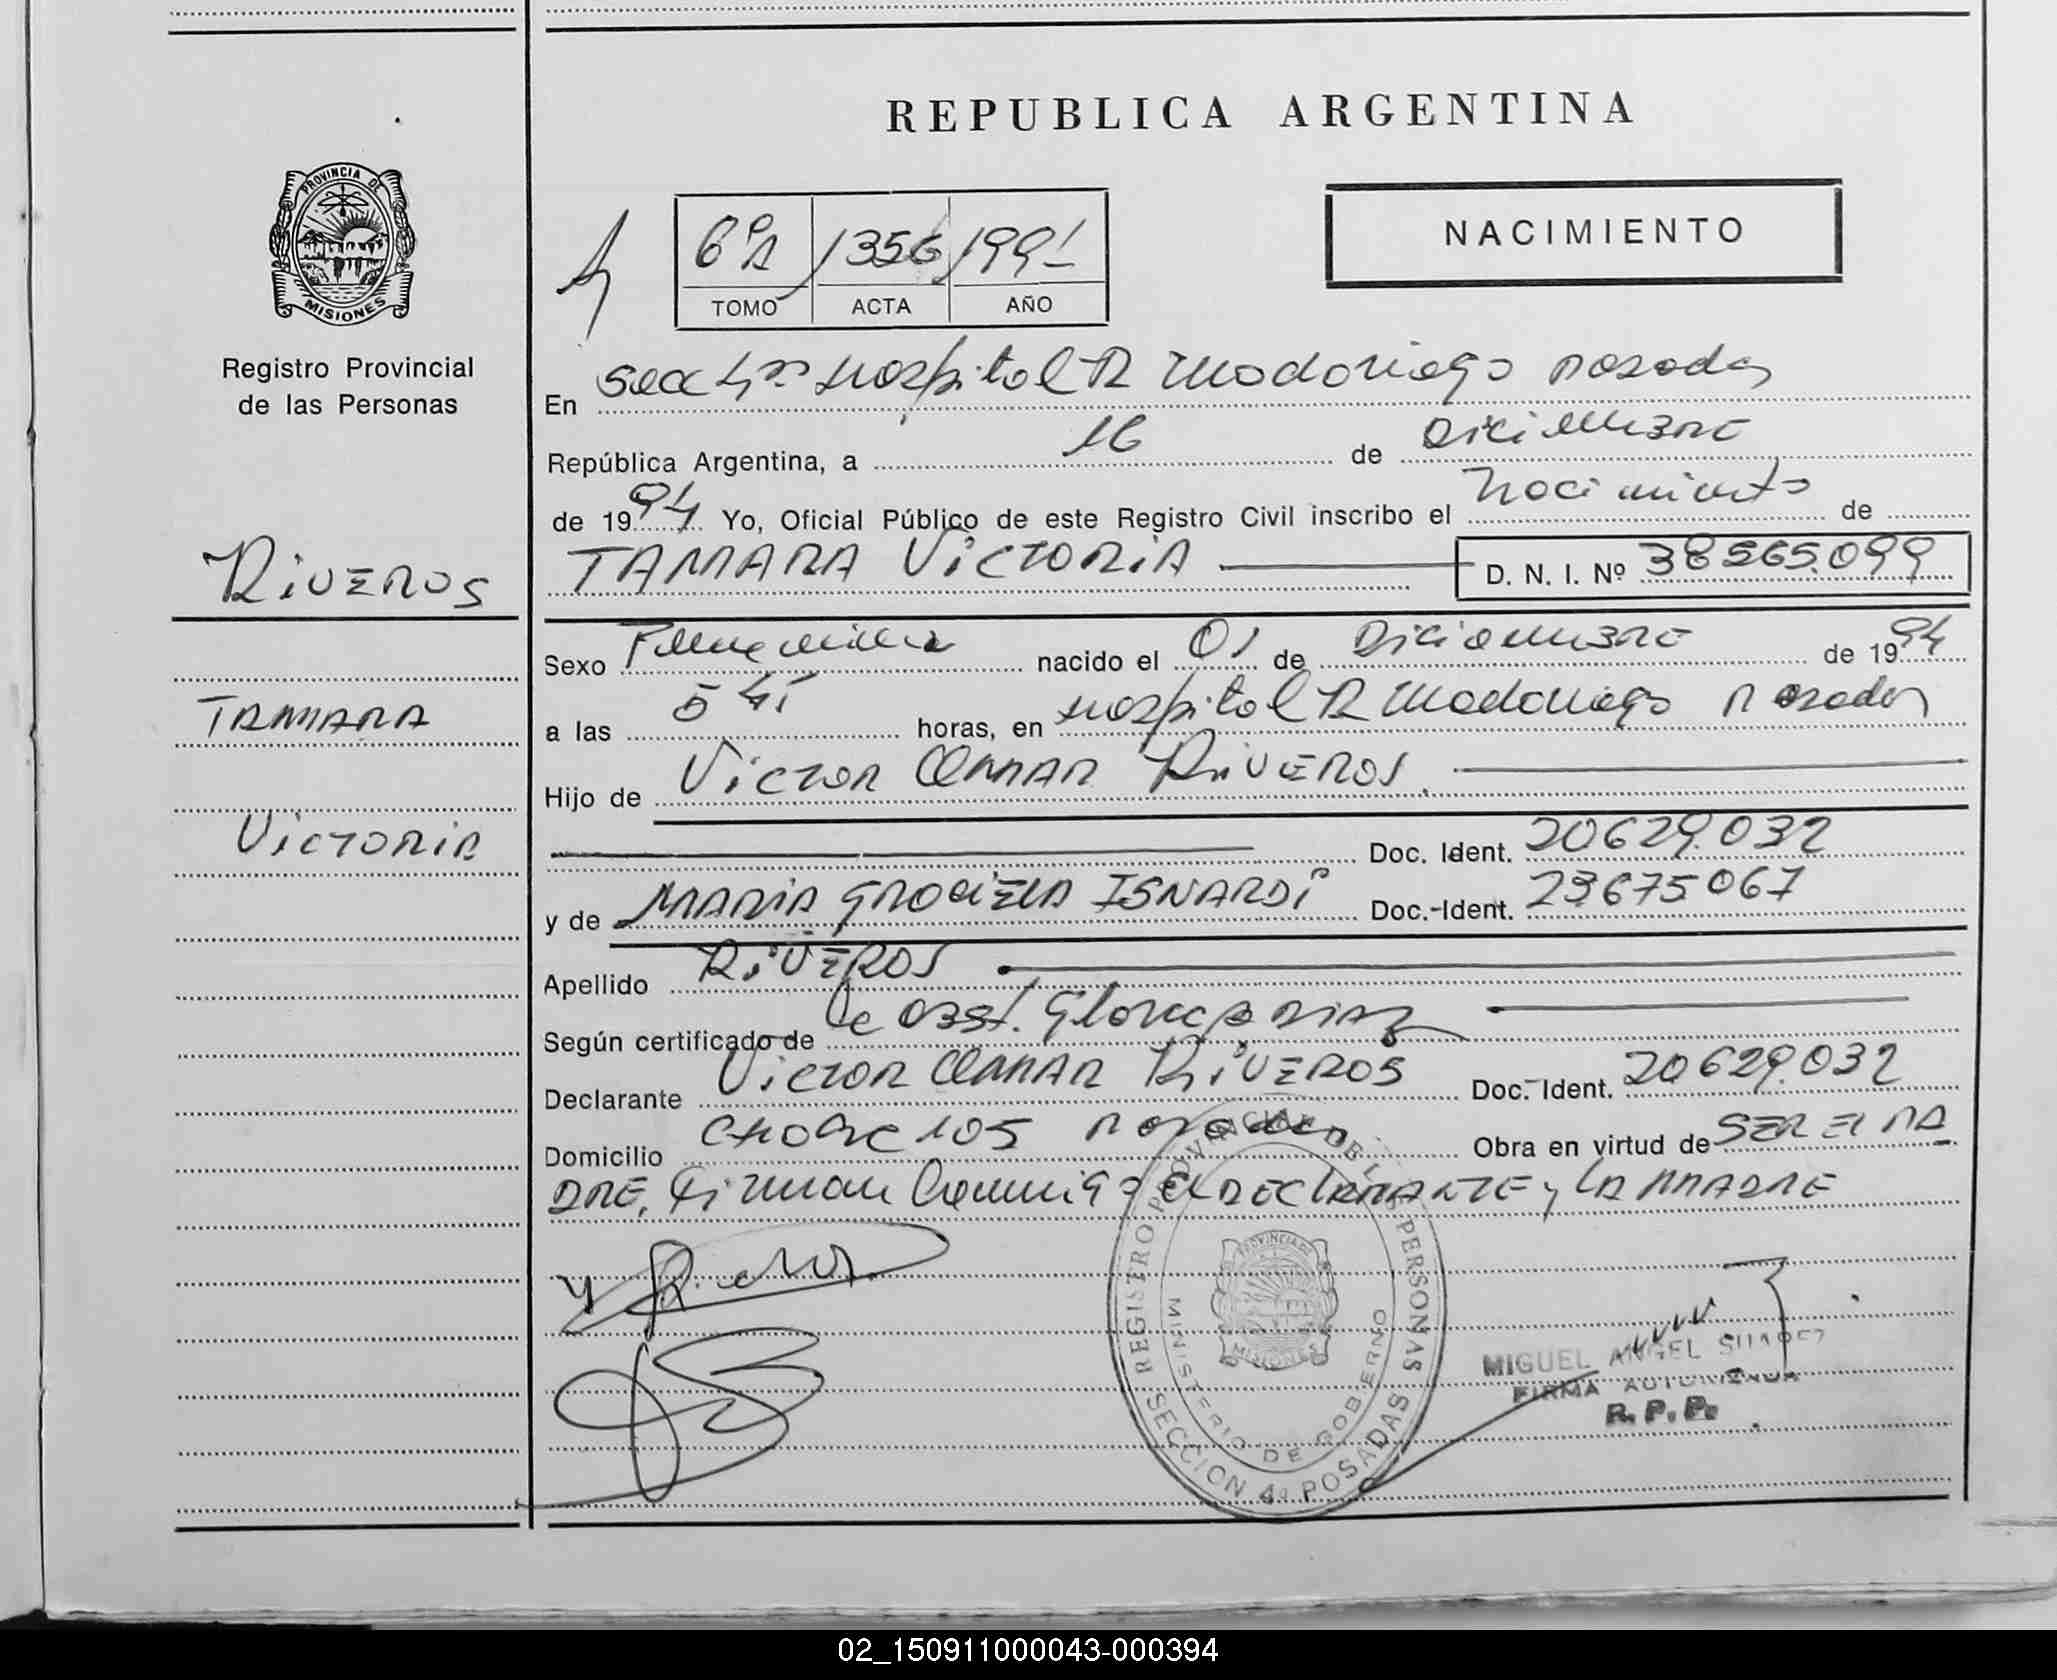 REPUBLICA ARGENTINA
PROVINCIA DE
MISIONES
Registro Provincial
de las Personas
6º A 1356 1994
TOMO ACTA AÑO
NACIMIENTO
En Secc 4ta Hospital R Madariaga Posadas
República Argentina, a 16 de Diciembre
de 1994 Yo, Oficial Público de este Registro Civil inscribo el Nacimiento de
RIVEROS
TAMARA VICTORIA D. N. I. Nº 38565.099
Sexo Femenino nacido el 01 de Diciembre de 1994
TAMARA
a las 5 45 horas, en Hospital R Madariaga Posadas
Hijo de VICTOR OMAR RIVEROS
VICTORIA
Doc. Ident. 20629.032
y de MARIA GRACIELA ISNARDI Doc.-Ident. 23675067
Apellido RIVEROS
Según certificado de Obst. Diaz
Declarante VICTOR OMAR RIVEROS Doc.-Ident. 20629.032
Domicilio 105 Posadas Obra en virtud de SER EL PA
DRE, Firman Conmigo el DECLARANTE y LA MADRE
REGISTRO PROVINCIAL DE LAS PERSONAS
MINISTERIO DE GOBIERNO
PROVINCIA DE
MISIONES
SECCION 4a POSADAS
MIGUEL ANGEL SUAREZ
FIRMA AUTORIZADA
R. P. P.
02_150911000043-000394